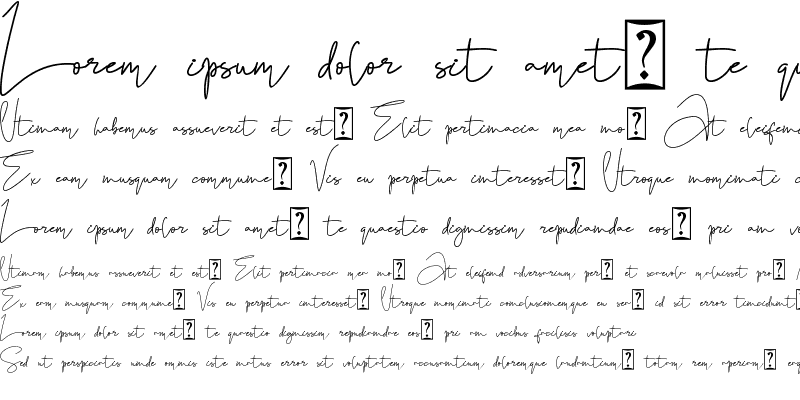 Lorem ipsum dolor sit amet? te qu
Utinam habemus assueverit et est? Elit pertinacia mea no? At eleife
Ex eam nusquam commune? Vis eu perpetua interesset? Utroque nominati c
Lorem ipsum dolor sit amet? te quaestio dignissim repudiandae eos? pri an vo
Utinam habemus assueverit et est? Elit pertinacia mea no? At eleifend adversarium per? et scaevola maluisset pro?
Ex eam nusquam commune? Vis eu perpetua interesset? Utroque nominati conclusionemque eu sea? id sit error tincidunt?
Lorem ipsum dolor sit amet? te quaestio dignissim repudiandae eos? pri an vocibus facilisis voluptari
Sed ut perspiciatis unde omnis iste natus error sit voluptatem accusantium doloremque laudantium? totam rem aperiam? eaq